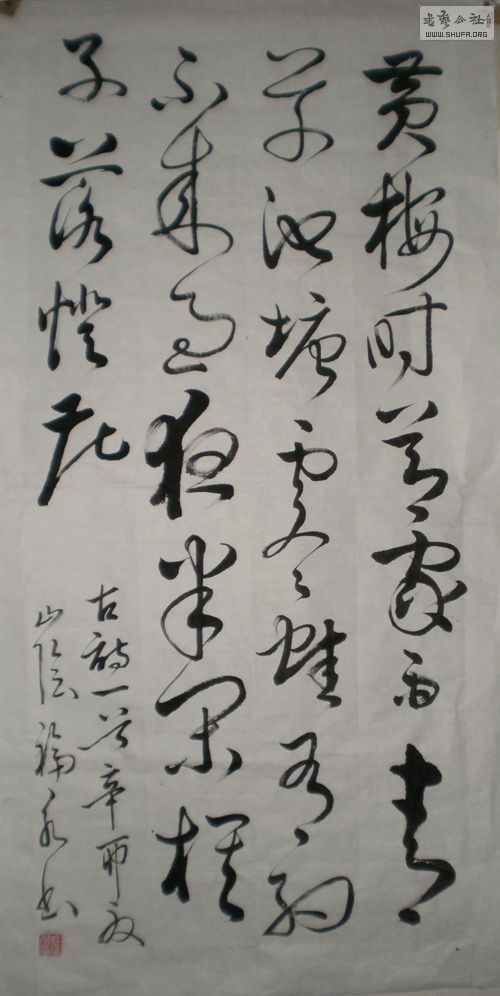 書藝公社
WWW.SHUFA.ORG
黄梅时节家々雨青
草池塘处々蛙有约
不来过夜半闲棋
子落燈花
古詩一首辛卯夏
山陰福永书